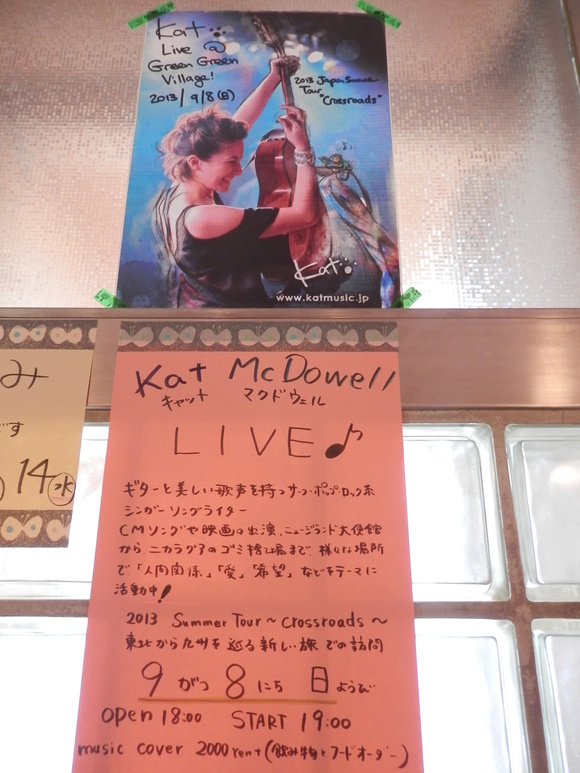 Kat
Live @
Green Green
Village!
2013/9/8(日)
2013 Japan Summer
Tour
"Crossroads"
Kat
www.katmusic.jp
み
です
14(水)
Kat McDowell
キャット マクドウェル
LIVE♪
ギターと美しい歌声を持つサーフ・ポップ・ロック系
シンガーソングライター
CMソングや映画の出演、ニュージランド大使館
からニカラグアのゴミ捨て場まで、様々な場所
で「人間関係」「愛」「希望」などをテーマに
活動中!
2013 Summer Tour ~ Crossroads ~
東北から九州を巡る新しい旅での訪問
9がつ8にち 日ようび
open 18:00 START 19:00
music cover 2000yen+(飲み物とフードオーダー)